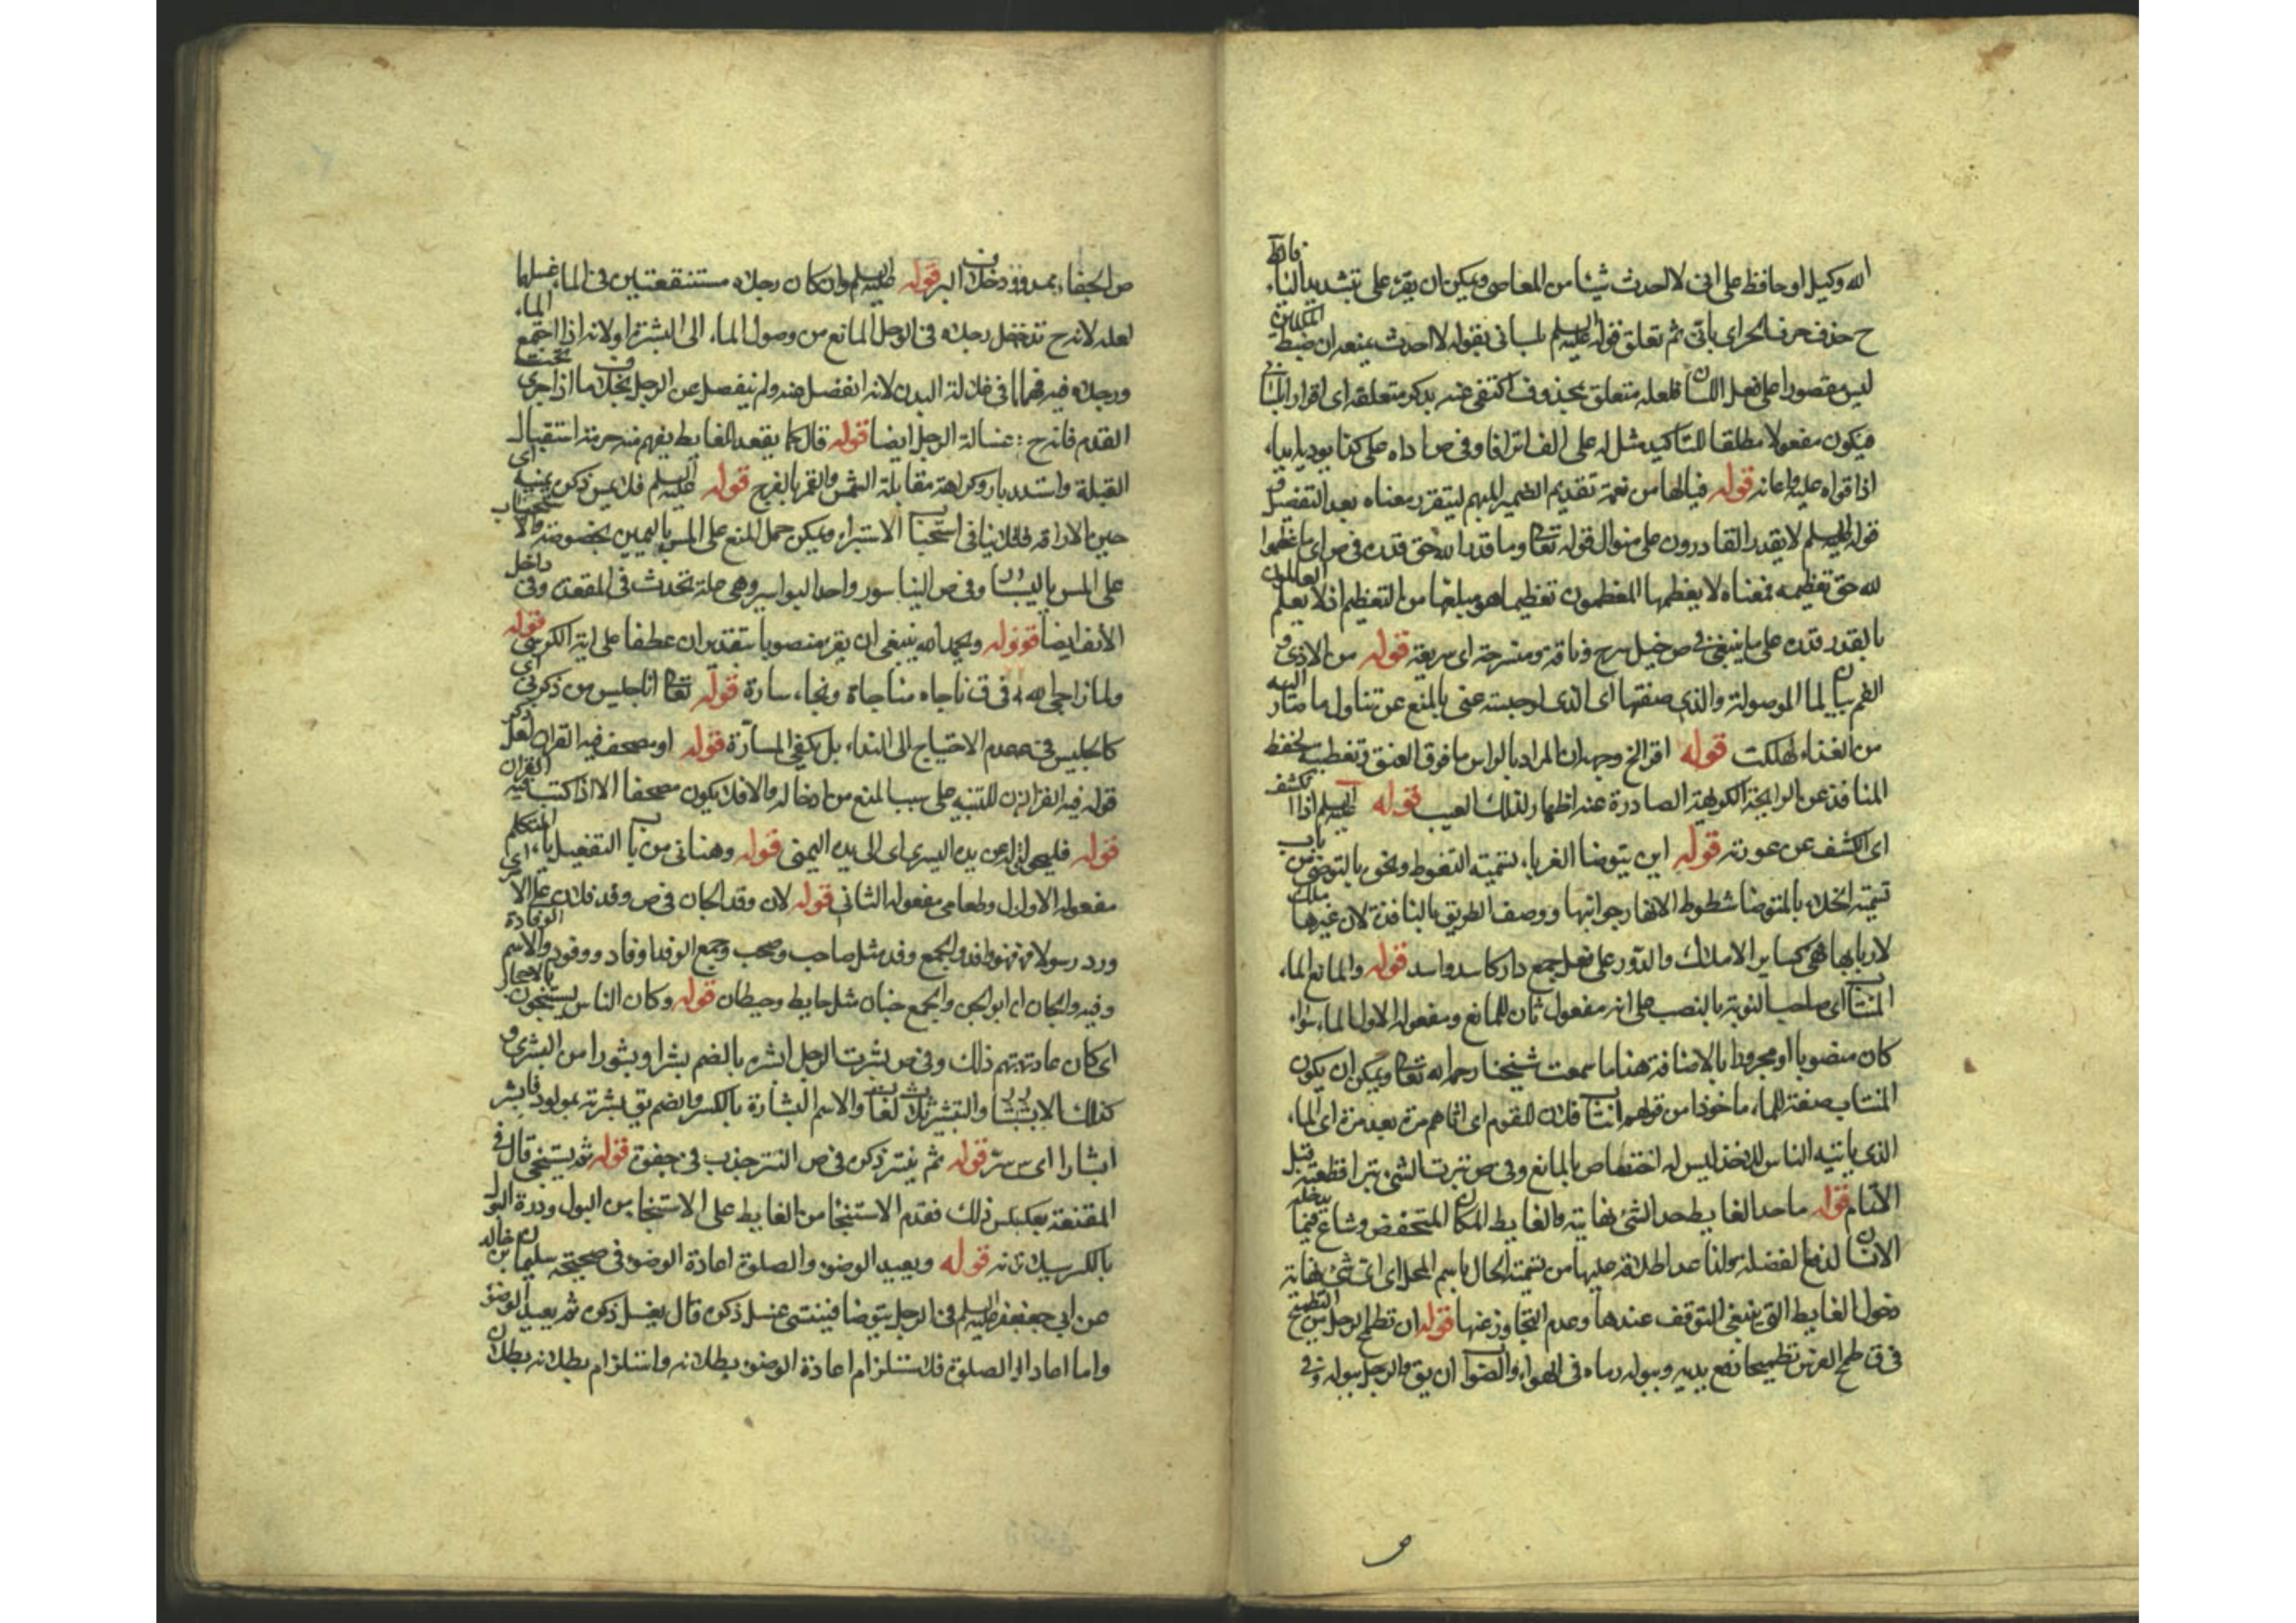 الله وكيل او حافظ على انى لا احدث شيئا من المعاصى ويمكن ان يقرء على بتشديد الياء
ح حذف حرف الجر اى بانى ثم تعلق قوله عليه السلم بلسانى بقوله لا احدث
ليس مقصورا على فعل اللسان فلعله متعلق بمحذوف اكتفى عنه بذكر متعلقه اى اقرارا بلسانى
فيكون مفعولا مطلقا للتاكيد مثل له على الف اعترافا وفى ص اداه على كذا يوديه ايداء
اذا قواه عليه واعانه قوله فيالها من نعمة تقديم الضمير المبهم ليتقرر معناه بعد التفصيل
قوله عليه السلم لا يقدر القادرون على منوال قوله تعالى وما قدروا الله حق قدره فى ص اى ما عظموا
لله حق تعظيمه فمعناه لا يعظمها المعظمون تعظيما هو مبلغها من التعظيم اذ لا يعلم العالمون
بالقدر قدره على ما ينبغى فى ص خيل سرح وناقة ومنسرحة اى سريعة قوله من الاذى
الغم بيان لما الموصولة والذى صفتها اى الذى لو حبسته عنى بالمنع عن تناول ما صار اليه
من الغذاء لهلكت قوله اقر الخ وجهه ان المراد بالراس ما فوق العنق وتغطيه لحفظ
المنافذ عن الرايحة الكريهة الصادرة عنه اظهار لذلك العيب قوله عليه السلم اذا انكشف
اى الكشف عن عورته قوله اين يتوضا الغرباء تسمية التغوط ونحوه بالتوضى من باب
تسمية الخلاء بالمتوضا شطوط الانهار جوانبها ووصف الطريق بالنافذة لان غيرها ملك
لاربابها فهى كساير الاملاك والدور على فعل جمع دار كاسد واسد قوله والمانع الماء
المنتاب اى صاحب النوبة بالنصب على انه مفعول ثان للمانع ومفعوله الاول الماء سواء
كان منصوبا او مجرورا بالاضافة هذا ما سمعت شيخنا رحمه الله تعالى ويمكن ان يكون
المنتاب صفة للماء ماخوذا من قولهم انتاب فلان للقوم اى اتاهم مرة بعد مرة اى الماء
الذى ياتيه الناس للاخذ ليس له اختصاص بالمانع وفى ص بترت الشئ بترا قطعته قبل
الاتمام قوله ما حد الغايط حد الشئ نهايته والغايط المكان المنخفض وشاع فيما يدخله
الانسان لدفع الفضلة ولنا عد اطلاقه عليها من تسمية الحال باسم المحل اى اى شئ نهاية
دخول الغايط التى ينبغى التوقف عندها وعدم التجاوز عنها قوله ان تطمح الرجل من التطميح
فى ق طمح الفرس تطميحا رفع يديه وببوله رماه فى الهواء والصواب ان يق والرجل ببوله وفى
ص الجفاء ممدود خلاف البر قوله عليه السلم وان كان رجلاه مستنقعتين فى الماء غسلهما
لعله لانه ح تدخل رجلاه فى الوحل المانع من وصول الماء الى البشرة او لانه اذا اجتمع الماء
ورجلاه فيه فهما فى غسالة البدن لانه انفصل عنه ولم ينفصل عن الرجل بخلاف ما اذا جرى تحت
القدم فانه ح غسالة الرجل ايضا قوله قال كما يقعد للغايط يفهم منه حرمة استقبال
القبلة واستدبارها وكراهة مقابلة الشمس والقمر بالفرج قوله عليه السلم فلا يمس ذكره بيمينه اى
حين الاراقة فلا ينافى استحباب الاستبراء ويمكن حمل المنع على المس باليمين بخصوصه والا
على المس باليسار وفى ص الناسور واحد البواسير وهى علة تحدث فى المقعدة وفى داخل
الانف ايضا قوله وبحمد الله ينبغى ان يقرء منصوبا بتقدير ان عطفا على اية الكرسى قوله
ولما ناجى الله فى ق ناجاه مناجاة ونجاء ساره قوله تعالى انا جليس من ذكرنى اى
كالجليس فى عدم الاحتياج الى النداء بل يكفى المسارة قوله او مصحف فيه القران لعل ذكر
قوله فيه القران للتنبيه على سبب المنع من ادخاله والا فلا يكون مصحفا الا اذا كتب فيه القران
قوله فليحوله من يده اليسرى اى الى يده اليمنى قوله وهنانى من باب التفعيل ياء المتكلم
مفعوله الاول وطعامى مفعوله الثانى قوله لان وفد الجان فى ص وفد فلان على الامير اى
ورد رسولا فهو وافد والجمع وفد مثل صاحب وصحب وجمع الوفد اوفاد ووفود والاسم الوفادة
وفيه والجان ابو الجن والجمع جنان مثل حايط وحيطان قوله وكان الناس يستنجون بالاحجار
اى كان عادتهم ذلك وفى ص بشرت الرجل ابشره بالضم بشرا وبشورا من البشرى و
كذلك الابشار والتبشير ثلاث لغات والاسم البشارة بالكسر والضم يق بشرته بمولود فابشر
ابشارا اى سر قوله ثم ينتر ذكره فى ص النتر جذب فى جفوة قوله ثم يستنجى قال فى
المقنعة بعكس ذلك فقدم الاستنجا من الغايط على الاستنجا من البول ودرة البول
بالكسر سيلانه قوله ويعيد الوضوء والصلوة اعادة الوضوء فى صحيحة سليمان بن خالد
عن ابى جعفر عليه السلم فى الرجل يتوضا فينسى غسل ذكره قال يغسل ذكره ثم يعيد الوضوء
واما اعادة الصلوة فلاستلزام اعادة الوضوء بطلانه واستلزام بطلانه بطلان